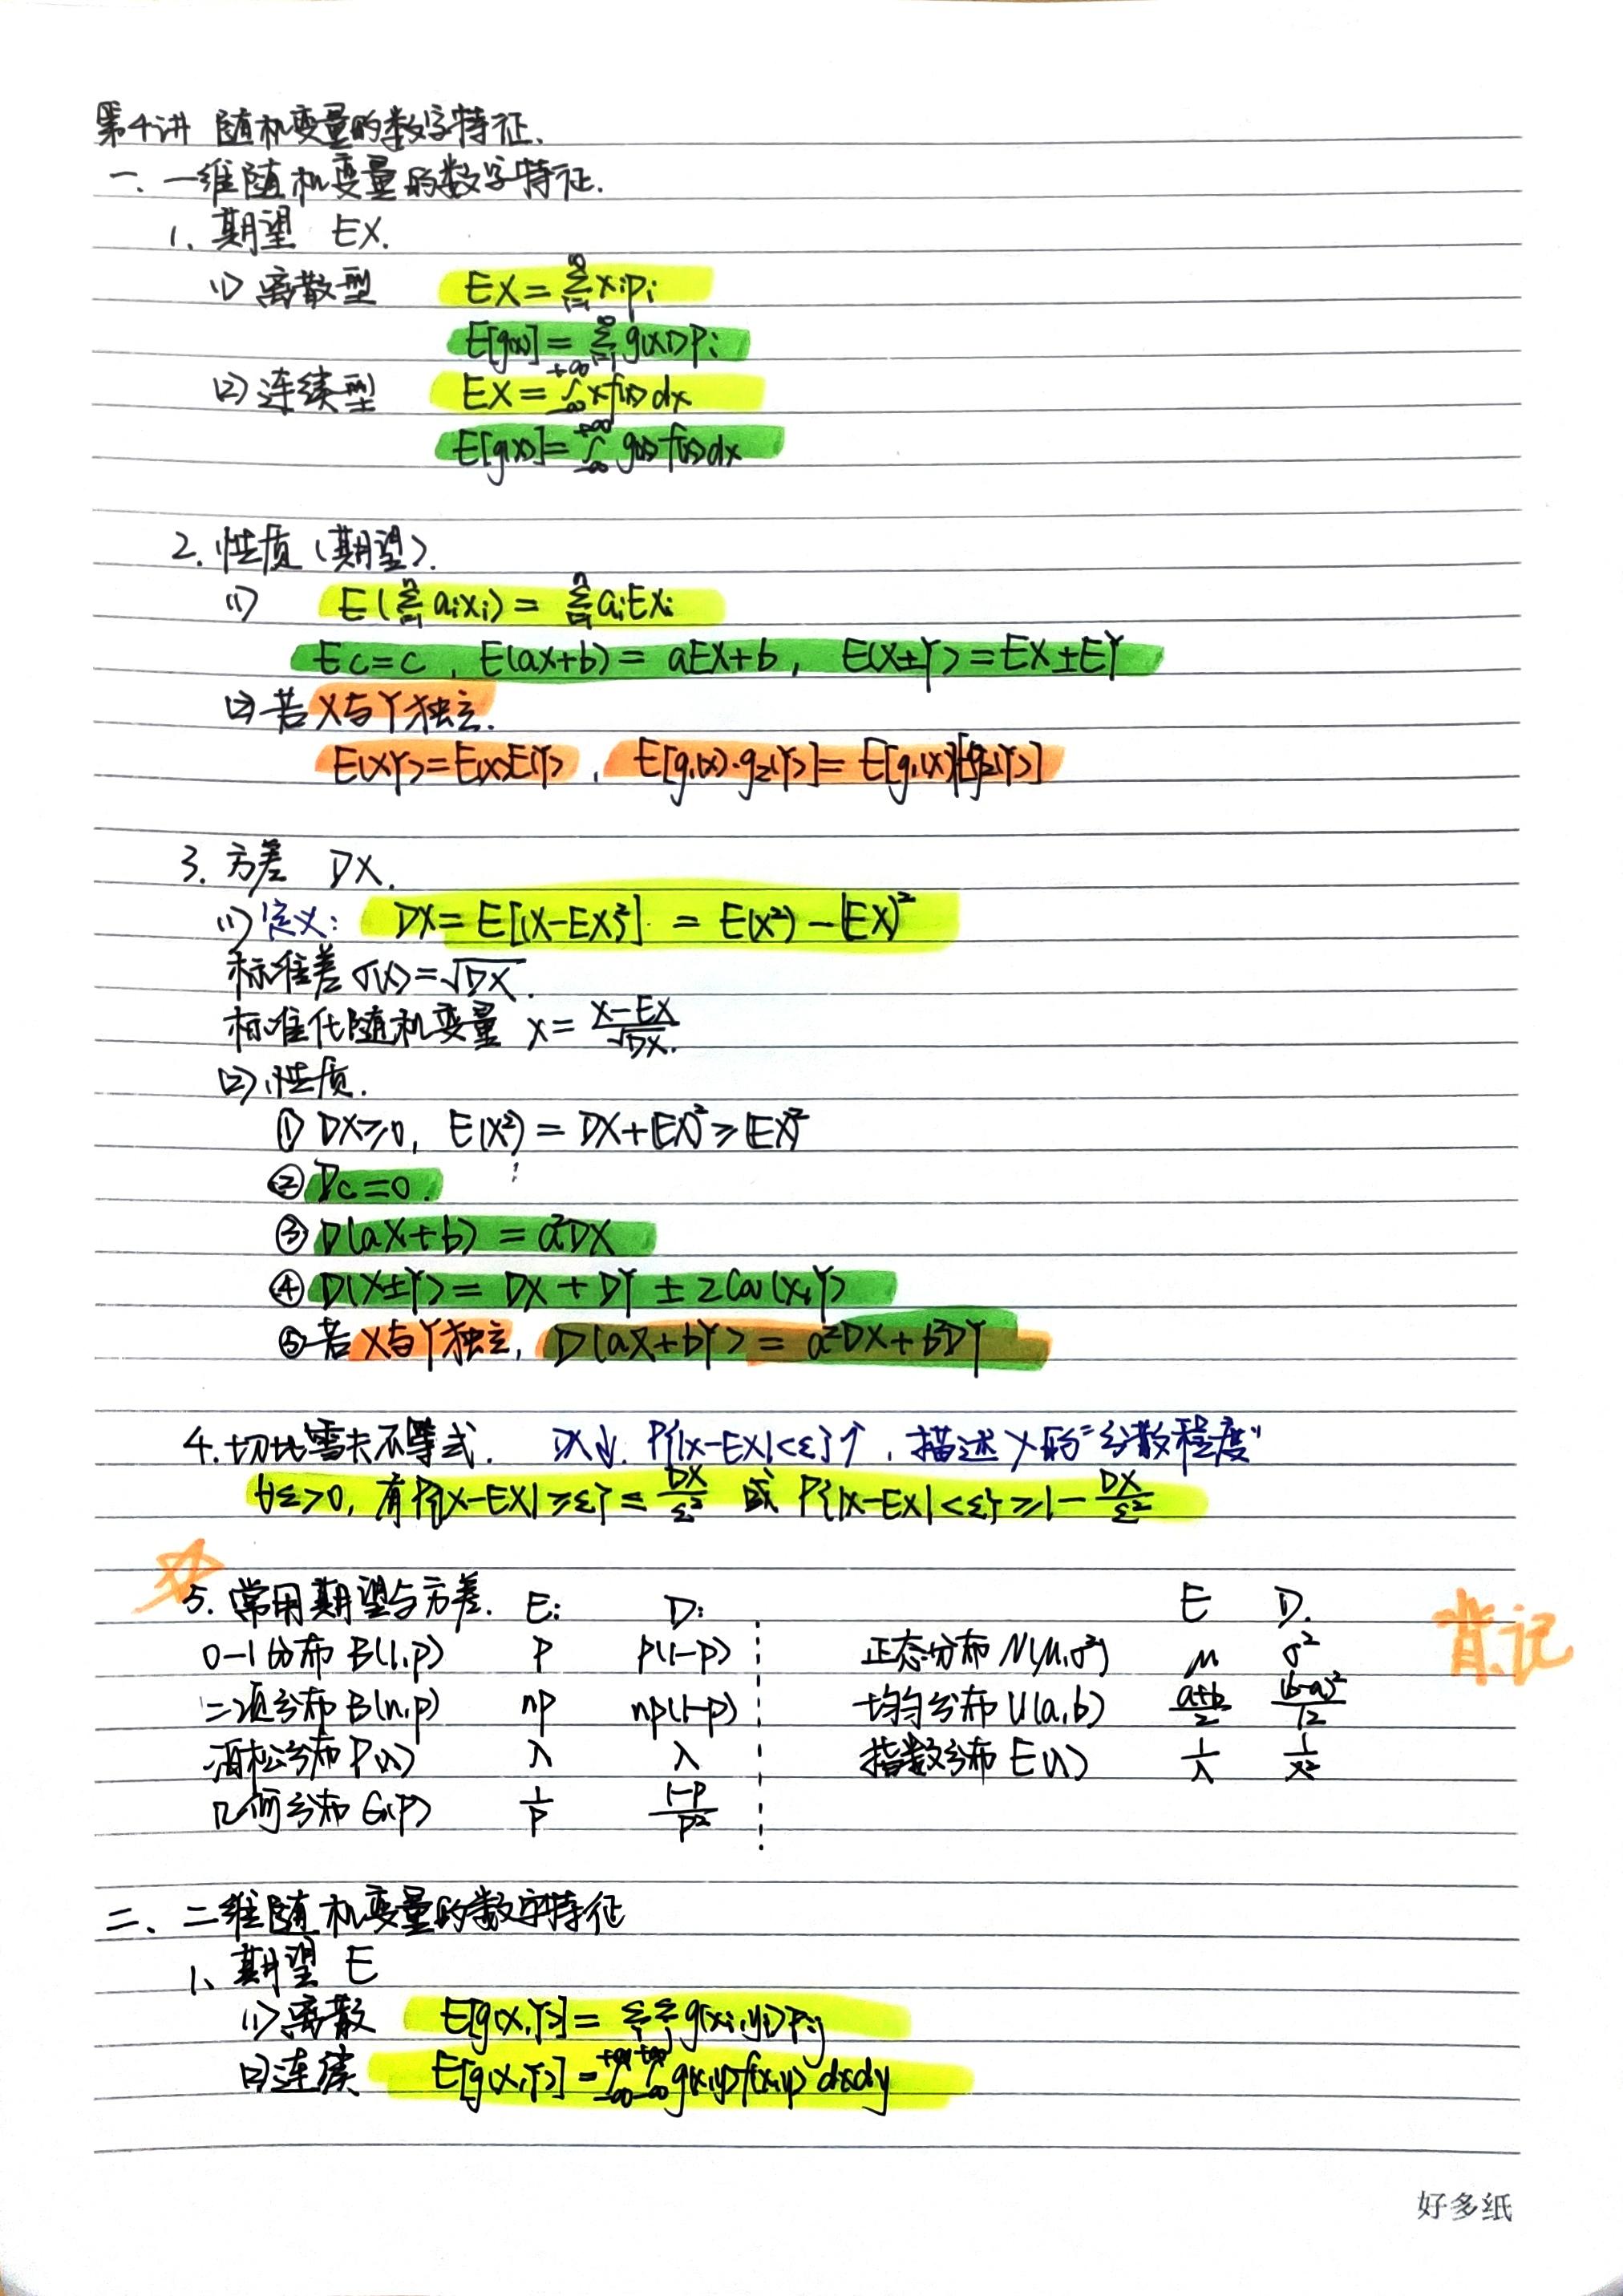 第4讲 随机变量的数字特征.
一. 一维随机变量的数字特征.
1. 期望 EX.
(1) 离散型 EX = ∑_{i=1}^{∞} xᵢpᵢ
E[g(x)] = ∑_{i=1}^{∞} g(xᵢ)pᵢ
(2) 连续型 EX = ∫_{-∞}^{+∞} x f(x) dx
E[g(x)] = ∫_{-∞}^{+∞} g(x) f(x) dx
2. 性质 (期望).
(1) E(∑_{i=1}^{n} aᵢxᵢ) = ∑_{i=1}^{n} aᵢExᵢ
Ec=c, E(ax+b) = aEX+b, E(X±Y) = EX±EY
(2) 若X与Y独立.
E(XY)=E(X)E(Y), E[g₁(x)·g₂(Y)] = E[g₁(x)]E[g₂(Y)]
3. 方差 DX.
(1) 定义: DX = E[(X-EX)²] = E(X²) - (EX)²
标准差 σ(x) = √DX.
标准化随机变量 X = (X-EX)/√DX.
(2) 性质.
① DX≥0, E(X²) = DX+(EX)² ≥ (EX)²
② Dc=0.
③ D(aX+b) = a²DX
④ D(X±Y) = DX + DY ± 2Cov(X,Y)
⑤ 若X与Y独立, D(aX+bY) = a²DX+b²DY
4. 切比雪夫不等式. DX↓. P{|X-EX|<ε}↑, 描述X的"分散程度"
∀ε>0, 有P{|X-EX|≥ε} ≤ DX/ε² 或 P{|X-EX|<ε} ≥ 1 - DX/ε²
5. 常用期望与方差. E: D: E D.
背记
0-1分布 B(1,p) p p(1-p) 正态分布 N(μ,σ²) μ σ²
二项分布 B(n,p) np np(1-p) 均匀分布 U(a,b) (a+b)/2 (b-a)²/12
泊松分布 P(λ) λ λ 指数分布 E(λ) 1/λ 1/λ²
几何分布 G(P) 1/P (1-P)/P²
二、二维随机变量的数字特征
1、期望 E
(1) 离散 E[g(X,Y)] = ∑ᵢ∑ⱼ g(xᵢ,yⱼ)Pᵢⱼ
(2) 连续 E[g(X,Y)] = ∫_{-∞}^{+∞}∫_{-∞}^{+∞} g(x,y)f(x,y) dxdy
好多纸